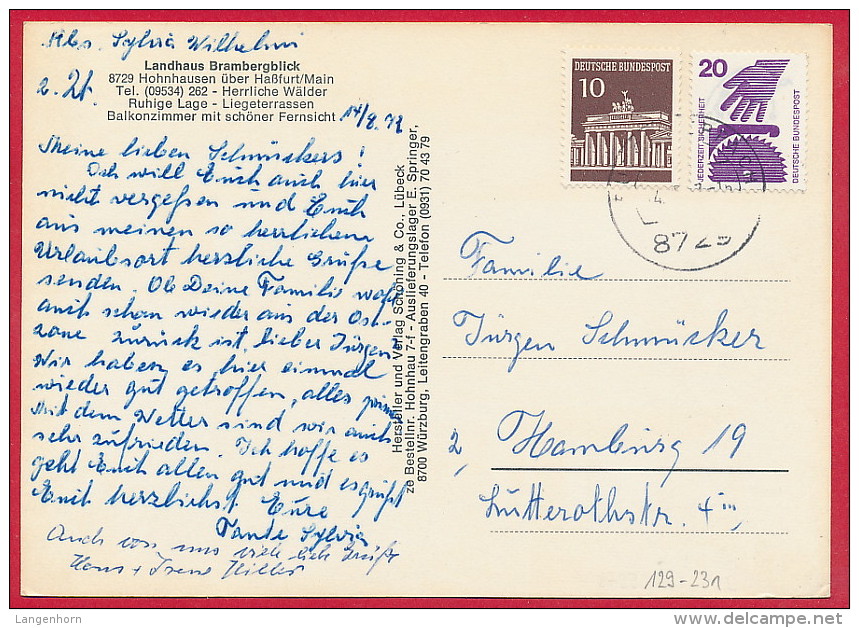 Abs. Sylvia Wilhelmi
Landhaus Brambergblick
8729 Hohnhausen über Haßfurt/Main
Tel. (09534) 262 - Herrliche Wälder
Ruhige Lage - Liegeterrassen
Balkonzimmer mit schöner Fernsicht
z. Zt.
14/8. 72
Meine lieben Schmückers!
Ich will Euch auch hier
nicht vergeßen und Euch
aus meinen so herrlichen
Urlaubsort herzliche Grüße
senden. Ob Deine Familie wohl
auch schon wieder aus der Ost-
zone zurück ist, lieber Jürgen?
Wir haben es hier einmal
wieder gut getroffen, alles prima
Mit dem Wetter sind wir auch
sehr zufrieden. Ich hoffe es
geht Euch allen gut und es grüßt
Euch herzlichst Eure
Tante Sylvia
Auch von uns viele lieb. Grüße
Hans + Irene Hiller
Hersteller und Verlag Schöning & Co., Lübeck
ze Bestellnr. Hohnhau 7-f - Auslieferungslager E. Springer,
8700 Würzburg, Leitengraben 40 - Telefon (0931) 70 43 79
DEUTSCHE BUNDESPOST
10
20
JEDERZEIT SICHERHEIT
DEUTSCHE BUNDESPOST
8729
Familie
Jürgen Schmücker
2, Hamburg 19
Lutterothstr. 4 III,
129-231
Langenhorn
delcampe.net